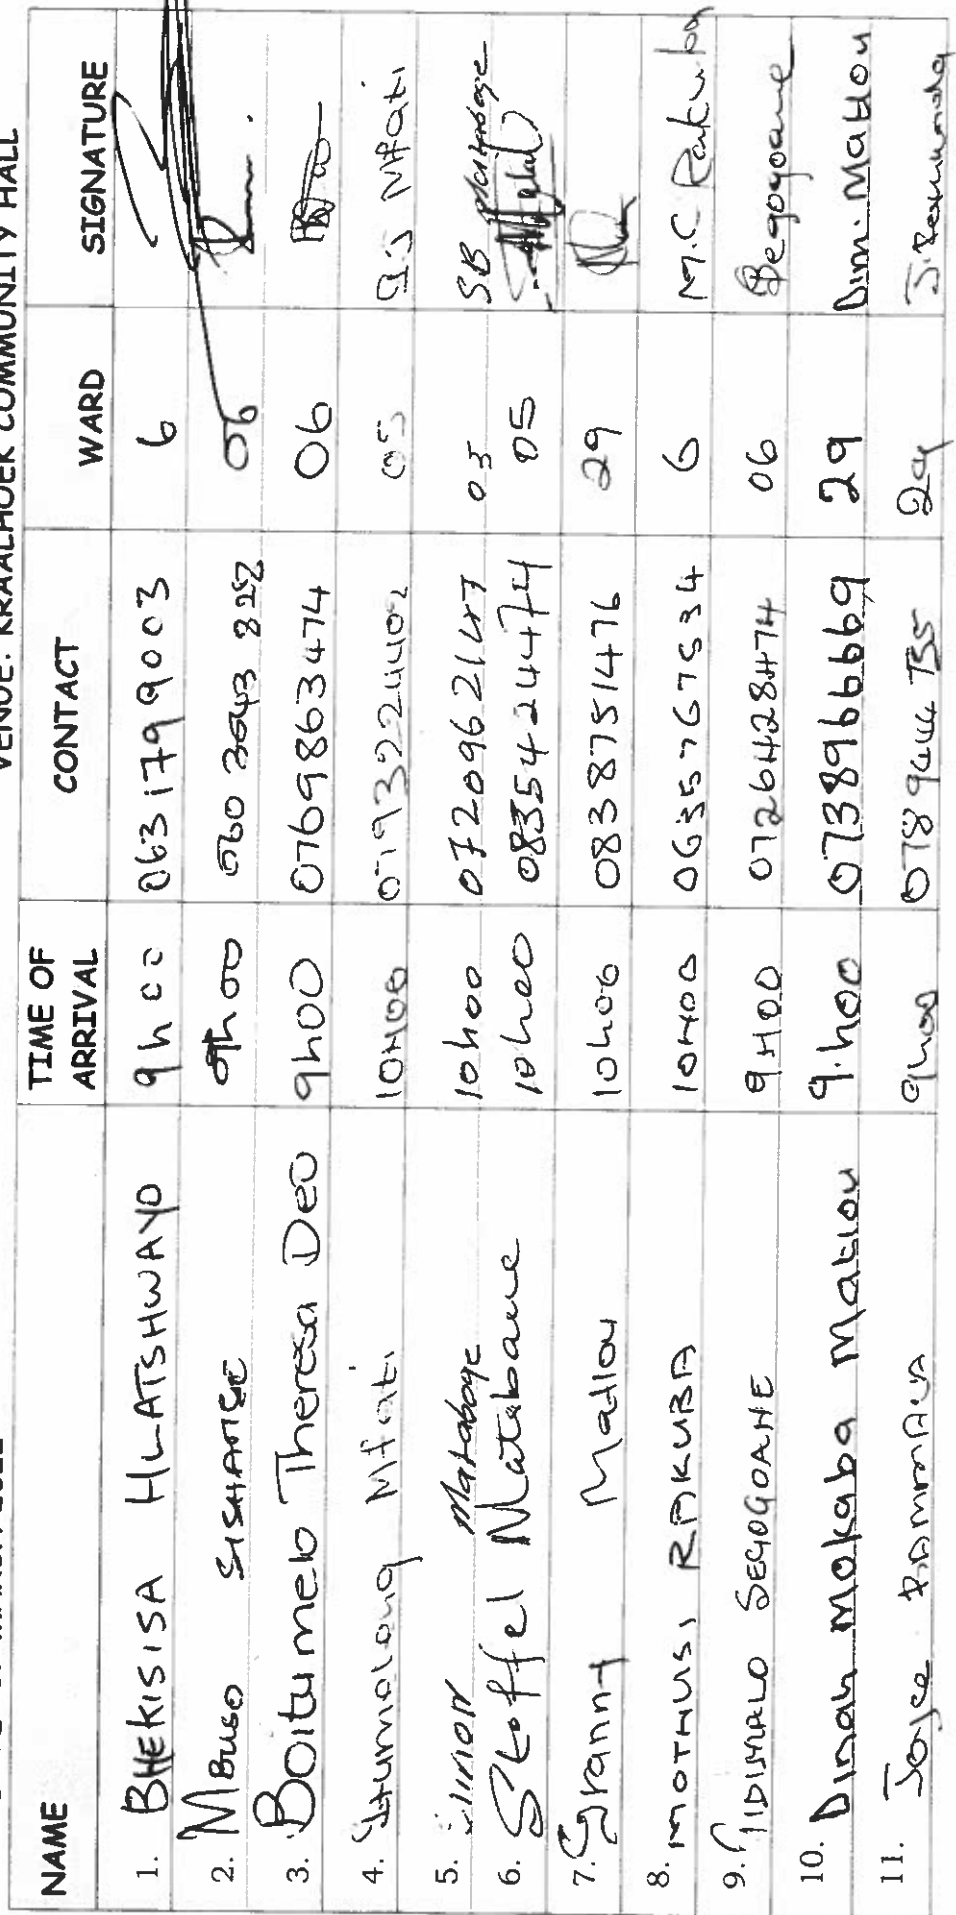 VENUE: KRAALHOEK COMMUNITY HALL
NAME TIME OF ARRIVAL CONTACT WARD SIGNATURE
1. BHEKISISA HLATSHWAYO 9h00 0631799003 6
2. MBUSO 9h00 06
3. Boitumelo Theresa Deo 9h00 0769863474 06
4. Mfati 10H00 0793224402 05 Mfati
5. Simon Mataboge 10h00 0720962147 05 SB Mataboge
6. Stoffel Matabane 10h00 0835424474 05
7. Granny Matlou 10h00 0838751476 29
8. MOTHUSI RAKUBA 10H00 0635767534 6 M.C Rakuba
9. SEGOGOANE 9H00 0726428474 06 Segogoane
10. Dinah Mokaba Matlou 9.h00 0738966669 29 D.m. Matlou
11. Joyce 9h00 29